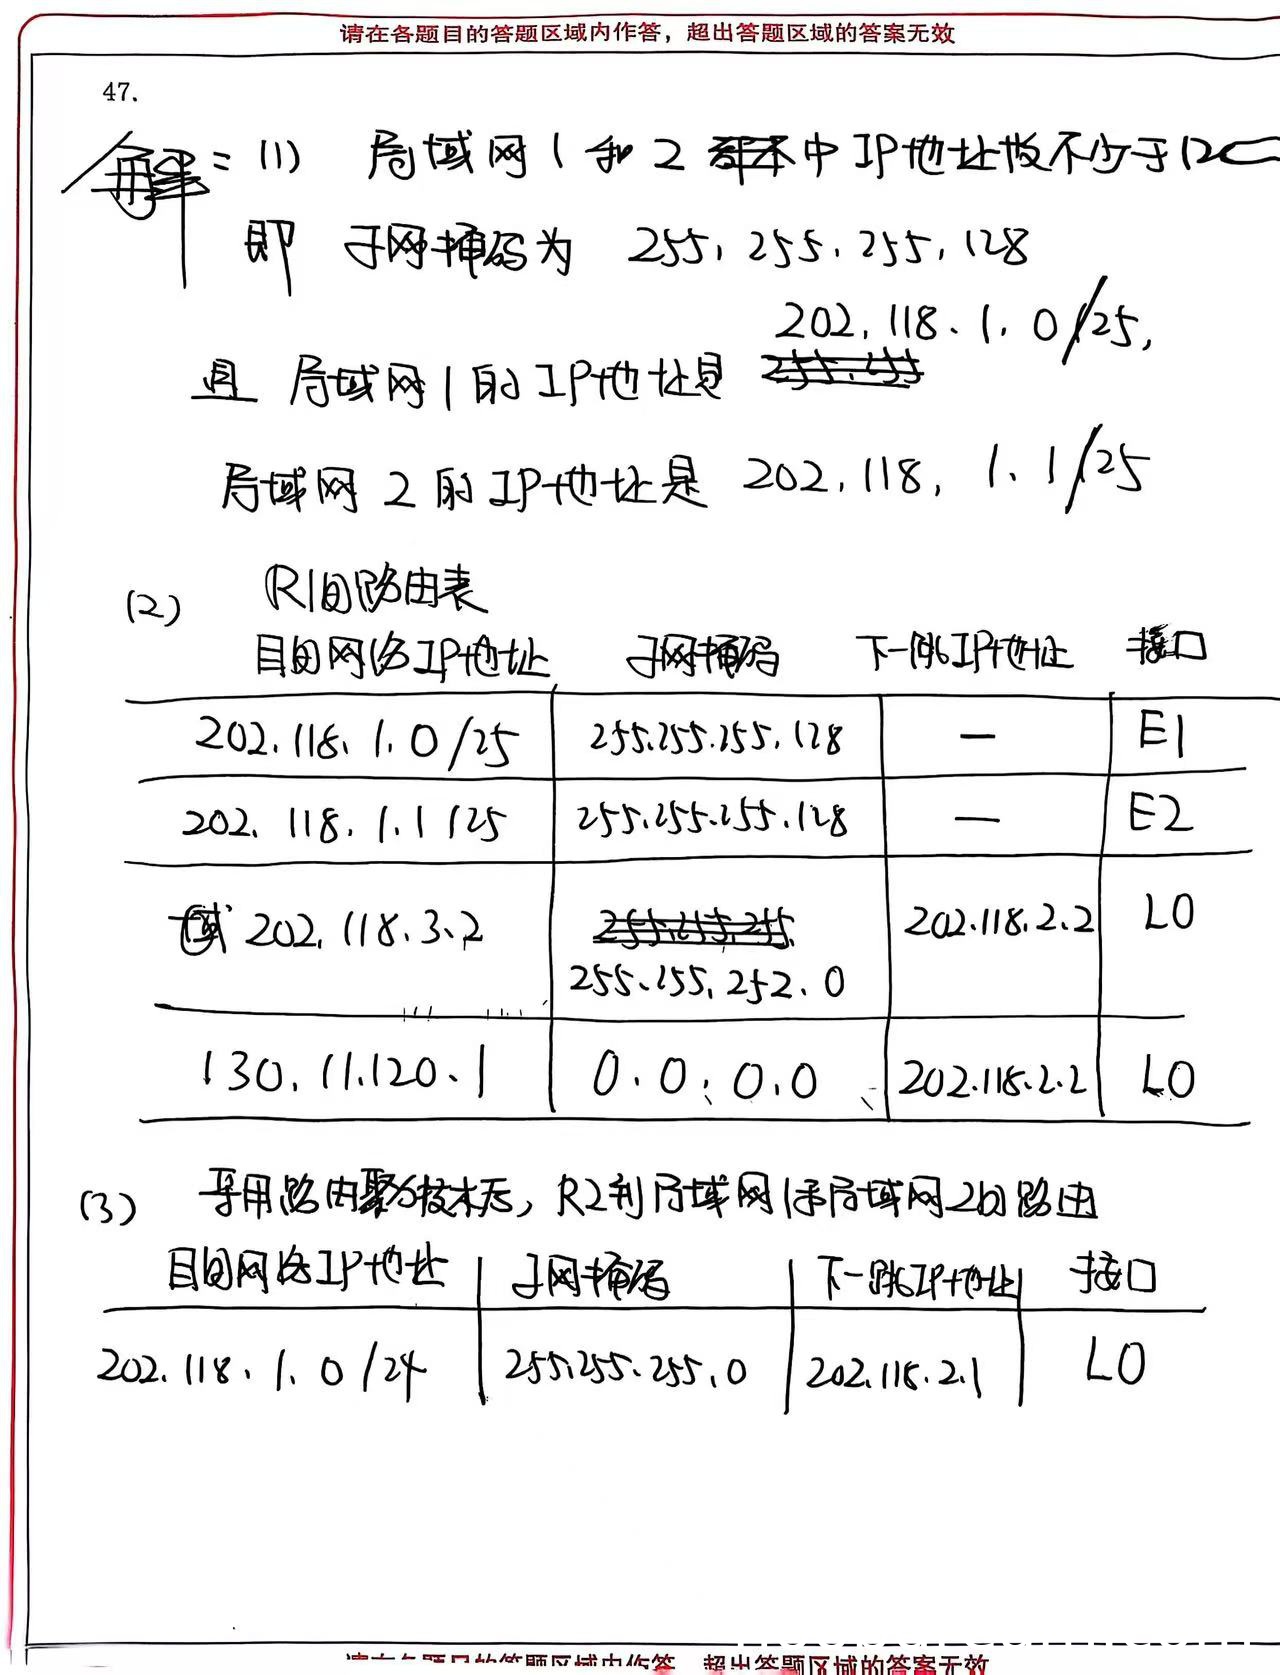 请在各题目的答题区域内作答，超出答题区域的答案无效
47.
解：(1) 局域网1和2中IP地址数不少于120
即 子网掩码为 255.255.255.128
202.118.1.0/25,
且 局域网1的IP地址是
局域网2的IP地址是 202.118.1.1/25
(2) R1的路由表
目的网络IP地址 子网掩码 下一跳IP地址 接口
202.118.1.0/25 255.255.255.128 — E1
202.118.1.1/25 255.255.255.128 — E2
域 202.118.3.2 202.118.2.2 L0
255.255.252.0
130.11.120.1 0.0.0.0 202.118.2.2 L0
(3) 采用路由聚合技术后，R2到局域网1和局域网2的路由
目的网络IP地址 子网掩码 下一跳IP地址 接口
202.118.1.0/24 255.255.255.0 202.118.2.1 L0
请在各题目的答题区域内作答，超出答题区域的答案无效